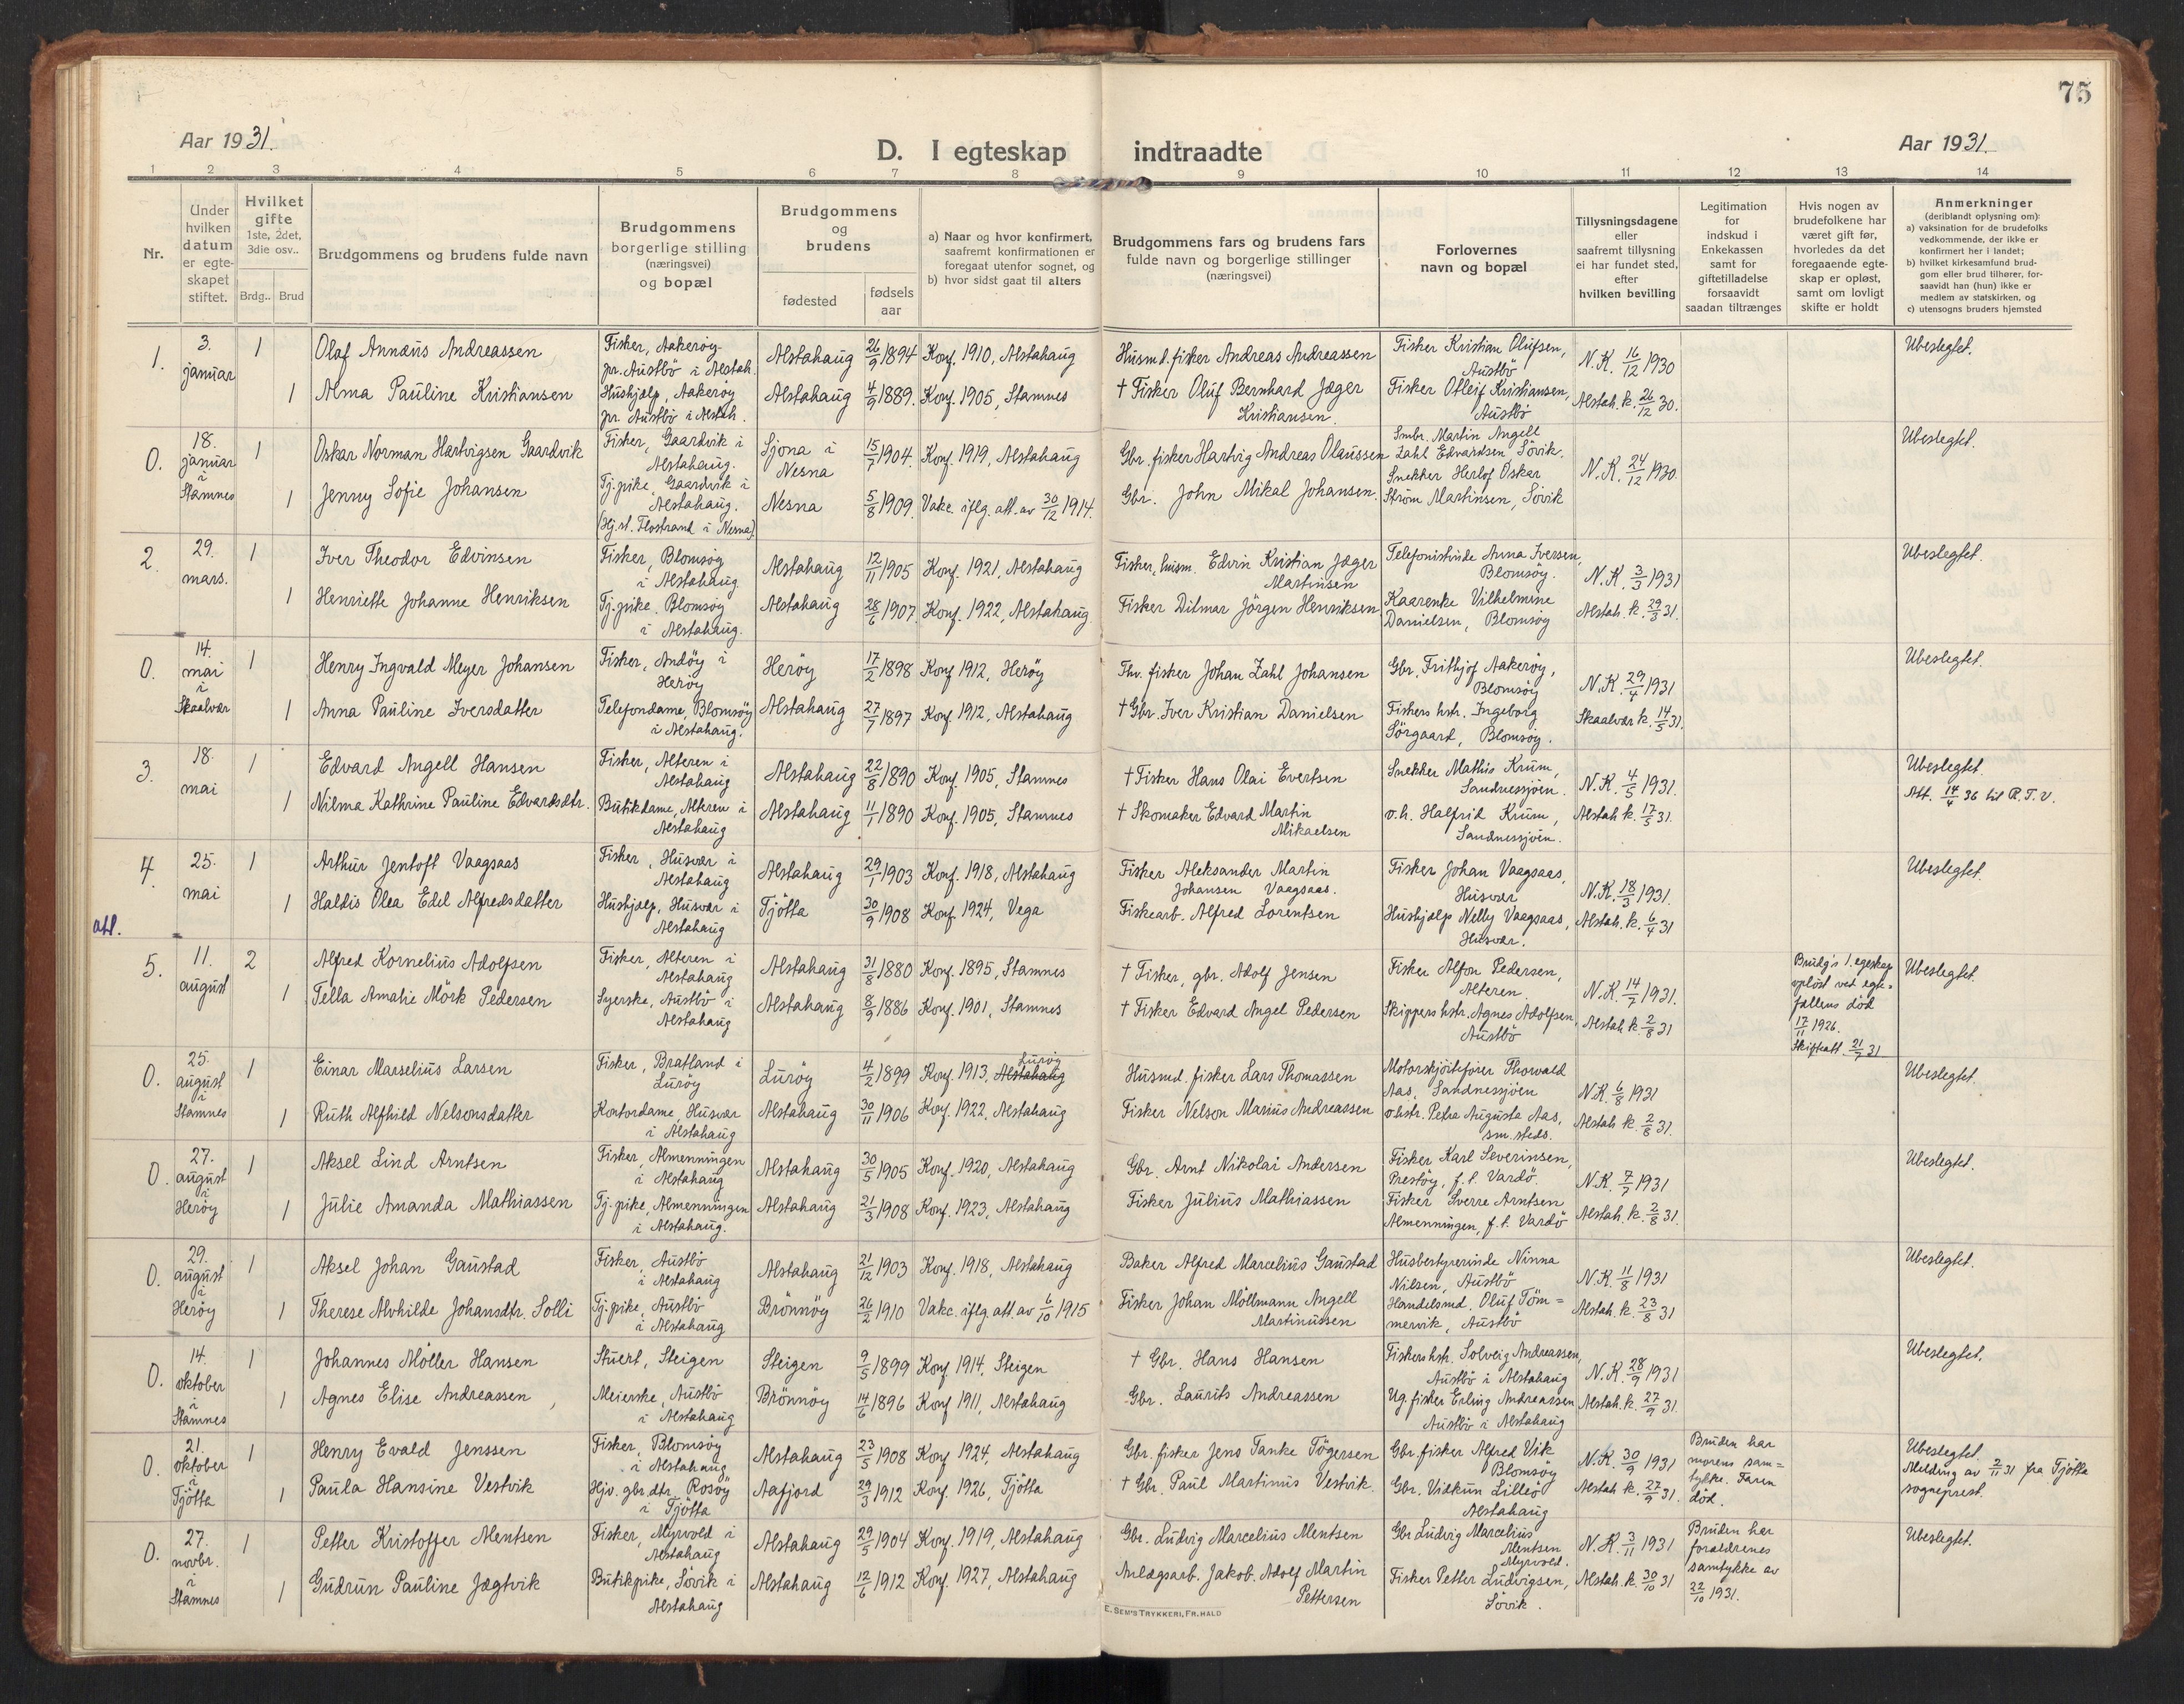 75
Aar 1931.
D. I egteskap indtraadte
Aar 1931.
1 2 3 4 5 6 7 8 9 10 11 12 13 14
Nr.
Under hvilken datum er egteskapet stiftet.
Hvilket gifte 1ste, 2det, 3die osv..
Brdg.. Brud
Brudgommens og brudens fulde navn
Brudgommens borgerlige stilling (næringsvei) og bopæl
Brudgommens og brudens
fødested
fødsels aar
a) Naar og hvor konfirmert, saafremt konfirmationen er foregaat utenfor sognet, og
b) hvor sidst gaat til alters
Brudgommens fars og brudens fars fulde navn og borgerlige stillinger (næringsvei)
Forlovernes navn og bopæl
Tillysningsdagene eller saafremt tillysning ei har fundet sted, efter hvilken bevilling
Legitimation for indskud i Enkekassen samt for giftetilladelse forsaavidt saadan tiltrænges
Hvis nogen av brudefolkene har været gift før, hvorledes da det foregaaende egteskap er opløst, samt om lovligt skifte er holdt
Anmerkninger (deriblandt oplysning om):
a) vaksination for de brudefolks vedkommende, der ikke er konfirmert her i landet;
b) hvilket kirkesamfund brudgom eller brud tilhører, forsaavidt han (hun) ikke er medlem av statskirken, og
c) utensogns bruders hjemsted
1. 3. januar 1 Olaf Annæus Andreassen Fisker, Aakerøy pr. Austbö i Alstah. Alstahaug 26/9 1894 Konf. 1910, Alstahaug Husmd. fisker Andreas Andreassen Fisker Kristian Olufsen, Austbö N.K. 16/12 1930 Ubeslegtet.
1 Alma Pauline Kristiansen Hushjælp, Aakerøy pr. Austbö i Alstah. Alstahaug 4/9 1889. Konf. 1905, Stamnes † Fisker Oluf Bernhard Jæger Kristiansen. Fisker Otleif Kristiansen, Austbö Alstah. k. 26/12 30.
0. 18. januar i Stamnes 1 Oskar Norman Hartvigsen Gaardvik Fisker, Gaardvik i Alstahaug. Sjona i Nesna 15/7 1904. Konf. 1919, Alstahaug Gbr. fisker Hartvig Andreas Olaussen Smbr. Martin Angell Zahl Edvardsen, Sövik. N.K. 24/12 1930. Ubeslegtet.
1 Jenny Sofie Johansen Tj.pike, Gaardvik i Alstahaug. (Hj.st. Flostrand i Nesna) Nesna 5/8 1909. Vakc. iflg. att. av 30/12 1914. Gbr. John Mikal Johansen. Snekker Herlof Oskar Ström Martinsen, Sövik
2. 29. mars. 1 Iver Theodor Edvinsen Fisker, Blomsöy i Alstahaug Alstahaug 12/11 1905 Konf. 1921, Alstahaug Fisker, husm. Edvin Kristian Jæger Martinsen Telefonistinde Anna Iversen, Blomsöy. N.K. 3/3 1931 Ubeslegtet.
1 Henriette Johanne Henriksen Tj.pike, Blomsöy i Alstahaug. Alstahaug 28/6 1907. Konf. 1922, Alstahaug. Fisker Dilmar Jörgen Henriksen Kaarenke Vilhelmine Danielsen, Blomsöy Alstah. k. 29/3 31.
0. 14. mai i Skaalvær 1 Henry Ingvald Meyer Johansen Fisker, Andöy i Heröy Heröy 17/2 1898 Konf 1912, Heröy Thv. fisker Johan Zahl Johansen Gbr. Frithjof Aakeröy, Blomsöy N.K. 29/4 1931 Ubeslegtet.
1 Anna Pauline Iversdatter Telefondame, Blomsöy i Alstahaug. Alstahaug 27/7 1897 Konf 1912, Alstahaug † Gbr. Iver Kristian Danielsen Fiskers hstr. Ingeborg Sörgaard, Blomsöy. Skaalvær k. 14/5 31.
3. 18. mai 1 Edvard Angell Hansen Fisker, Alteren i Alstahaug Alstahaug 22/8 1890 Konf. 1905, Stamnes † Fisker Hans Olai Evertsen Snekker Mathis Krum, Sandnessjöen. N.K. 4/5 1931. Ubeslegtet. Att. 14/4 36 til R.T.V.
1 Nilma Kathrine Pauline Edvardsdtr. Butikdame, Alteren i Alstahaug Alstahaug 11/1 1890 Konf. 1905, Stamnes † Skomaker Edvard Martin Mikaelsen o.h. Halfrid Krum, Sandnessjöen. Alstah k. 17/5 31.
4. 25. mai 1 Arthur Jentoft Vaagsaas Fisker, Husvær i Alstahaug Alstahaug 29/1 1903 Konf. 1918, Alstahaug Fisker Aleksander Martin Johansen Vaagsaas. Fisker Johan Vaagsaas, Husvær N.K. 18/3 1931. Ubeslegtet.
att. 1 Haldis Olea Edel Alfredsdatter Hushjælp, Husvær i Alstahaug Tjötta 30/9 1908 Konf 1924, Vega Fiskearb. Alfred Lorentsen Hushjælp Nelly Vaagsaas, Husvær. Alstah. k. 6/4 31
5. 11. august 2 Alfred Kornelius Adolfsen Fisker, Alteren i Alstahaug Alstahaug 31/8 1880 Konf. 1895, Stamnes † Fisker, gbr. Adolf Jensen Fisker Alfon Pedersen, Alteren. N.K. 14/7 1931. Brudg's 1. egeskap oplöst ved egtefællens död 17/11 1926. Skifteatt. 21/7 31 Ubeslegtet.
1 Tella Amalie Mörk Pedersen Syerske, Austbö i Alstahaug Alstahaug 8/9 1886 Konf. 1901, Stamnes † Fisker Edvard Angel Pedersen Skippers hstr. Agnes Adolfsen, Austbö Alstah k. 2/8 31
0. 25. august i Stamnes 1 Einar Marselius Larsen Fisker, Bratland i Luröy Luröy 4/2 1899 Konf. 1913, Alstahaug Luröy Husmd. fisker Lars Thomassen Motorskjöitefører Thorvald Aas, Sandnessjöen N.K. 6/8 1931 Ubeslegtet.
1 Ruth Alfhild Nelsonsdatter Kontordame, Husvær i Alstahaug Alstahaug 30/11 1906 Konf. 1922, Alstahaug Fisker Nelson Marius Andreassen o.hstr. Petra Augusta Aas, sm. steds. Alstah k. 2/8 31.
0. 27. august i Heröy 1 Aksel Lind Arntsen Fisker, Almenningen i Alstahaug Alstahaug 30/5 1905 Konf. 1920, Alstahaug Gbr. Arnt Nikolai Andersen Fisker Karl Severinsen, Prestöy, f.t. Vardö. N.K. 7/7 1931 Ubeslegtet.
1 Julie Amanda Mathiassen Tj.pike, Almenningen i Alstahaug. Alstahaug 21/3 1908 Konf. 1923, Alstahaug Fisker Julius Mathiassen Fisker Sverre Arntsen Almenningen, f.t. Vardö Alstah. k. 2/8 31.
0. 29. august i Heröy 1 Aksel Johan Gaustad Fisker, Austbö i Alstahaug Alstahaug 21/12 1903 Konf. 1918, Alstahaug Baker Alfred Marcelius Gaustad Husbestyrerinde Ninna Nilsen, Austbö N.K. 11/8 1931 Ubeslegtet.
1 Therese Alvhilde Johansdtr. Solli Tj.pike, Austbö i Alstahaug Brönnöy 26/2 1910 Vakc. iflg. att. av 6/10 1915 Fisker Johan Möllmann Angell Martinussen Handelsmd. Oluf Tömmervik, Austbö Alstah. k. 23/8 31
0. 14. oktober i Stamnes 1 Johannes Möller Hansen Stuert, Steigen Steigen 9/5 1899 Konf. 1914, Steigen † Gbr. Hans Hansen Fiskers hstr. Solveig Andreassen, Austbö i Alstahaug N.K. 28/9 1931 Ubeslegtet.
1 Agnes Elise Andreassen Meierske, Austbö i Alstahaug Brönnöy 14/6 1896 Konf 1911, Alstahaug Gbr. Laurits Andreassen Ug. fisker Erling Andreassen Austbö i Alstahaug Alstah. k. 27/9 31.
0. 21. oktober i Tjötta 1 Henry Evald Jenssen Fisker, Blomsöy i Alstahaug Alstahaug 23/5 1908 Konf 1924, Alstahaug Gbr. fisker Jens Tanke Tögersen Gbr. fisker Alfred Vik Blomsöy N.K. 30/9 1931 Bruden har morens samtykke. Faren död. Ubeslegtet. Melding av 2/11 31 fra Tjötta sogneprest.
1 Paula Hansine Vestvik Hjv. gbr.dtr. Rosöy i Tjötta Aafjord 29/3 1912 Konf. 1926, Tjötta † Gbr. Paul Martinus Vestvik. Gbr. Vidkun Lilleö Alstahaug Alstah k. 27/9 31.
0. 27. novbr. i Stamnes 1 Petter Kristoffer Mentsen Fisker, Myrvold i Alstahaug Alstahaug 29/5 1904 Konf. 1919, Alstahaug Gbr. Ludvig Marcelius Mentsen Gbr Ludvig Marcelius Mentsen Myrvold. N.K. 3/11 1931 Bruden har forældrenes samtykke av 22/10 1931. Ubeslegtet.
1 Gudrun Pauline Jægtvik Butikpike, Sövik i Alstahaug Alstahaug 12/6 1912 Konf. 1927, Alstahaug Anlægsarb. Jakob Adolf Martin Pettersen Fisker Petter Ludvigsen, Sövik. Alstah. k. 30/10 31
E. SEM'S TRYKKERI, FR. HALD